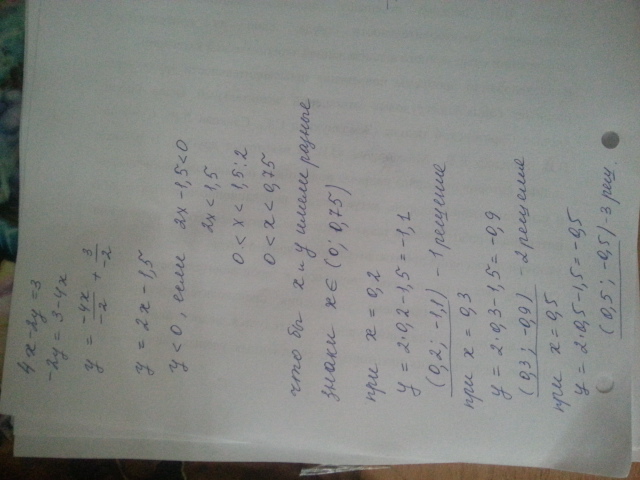 4x-2y=3
-2y=3-4x
y = -4x/-2 + 3/-2
y = 2x-1,5
y<0, если 2x-1,5<0
2x<1,5
0<x<1,5:2
0<x<0,75
что бы x и y имели разные
знаки x∈(0; 0,75)
при x=0,2
y=2·0,2-1,5=-1,1
(0,2; -1,1) - 1 решение
при x=0,3
y=2·0,3-1,5=-0,9
(0,3; -0,9) - 2 решение
при x=0,5
y=2·0,5-1,5=-0,5
(0,5; -0,5) - 3 реш.